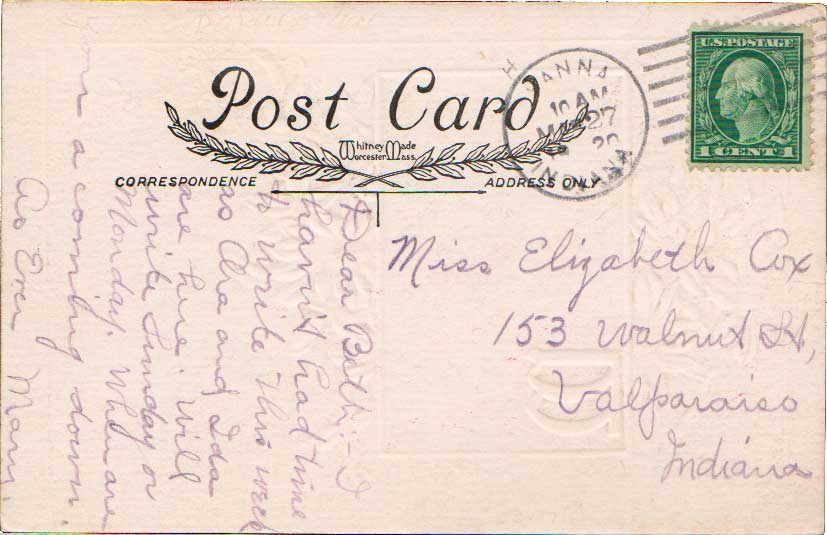 Post Card
Whitney Made
Worcester, Mass.
CORRESPONDENCE
ADDRESS ONLY
U.S. POSTAGE
1 CENT 1
HANNA
10 AM
27
20
INDIANA
Miss Elizabeth Cox
153 Walnut St,
Valparaiso
Indiana
Dear Beth:- I
havn't had time
to write this week
as Ora and Ida
are here. Will
write Sunday or
Monday. When are
you a coming down.
As Ever Mary.